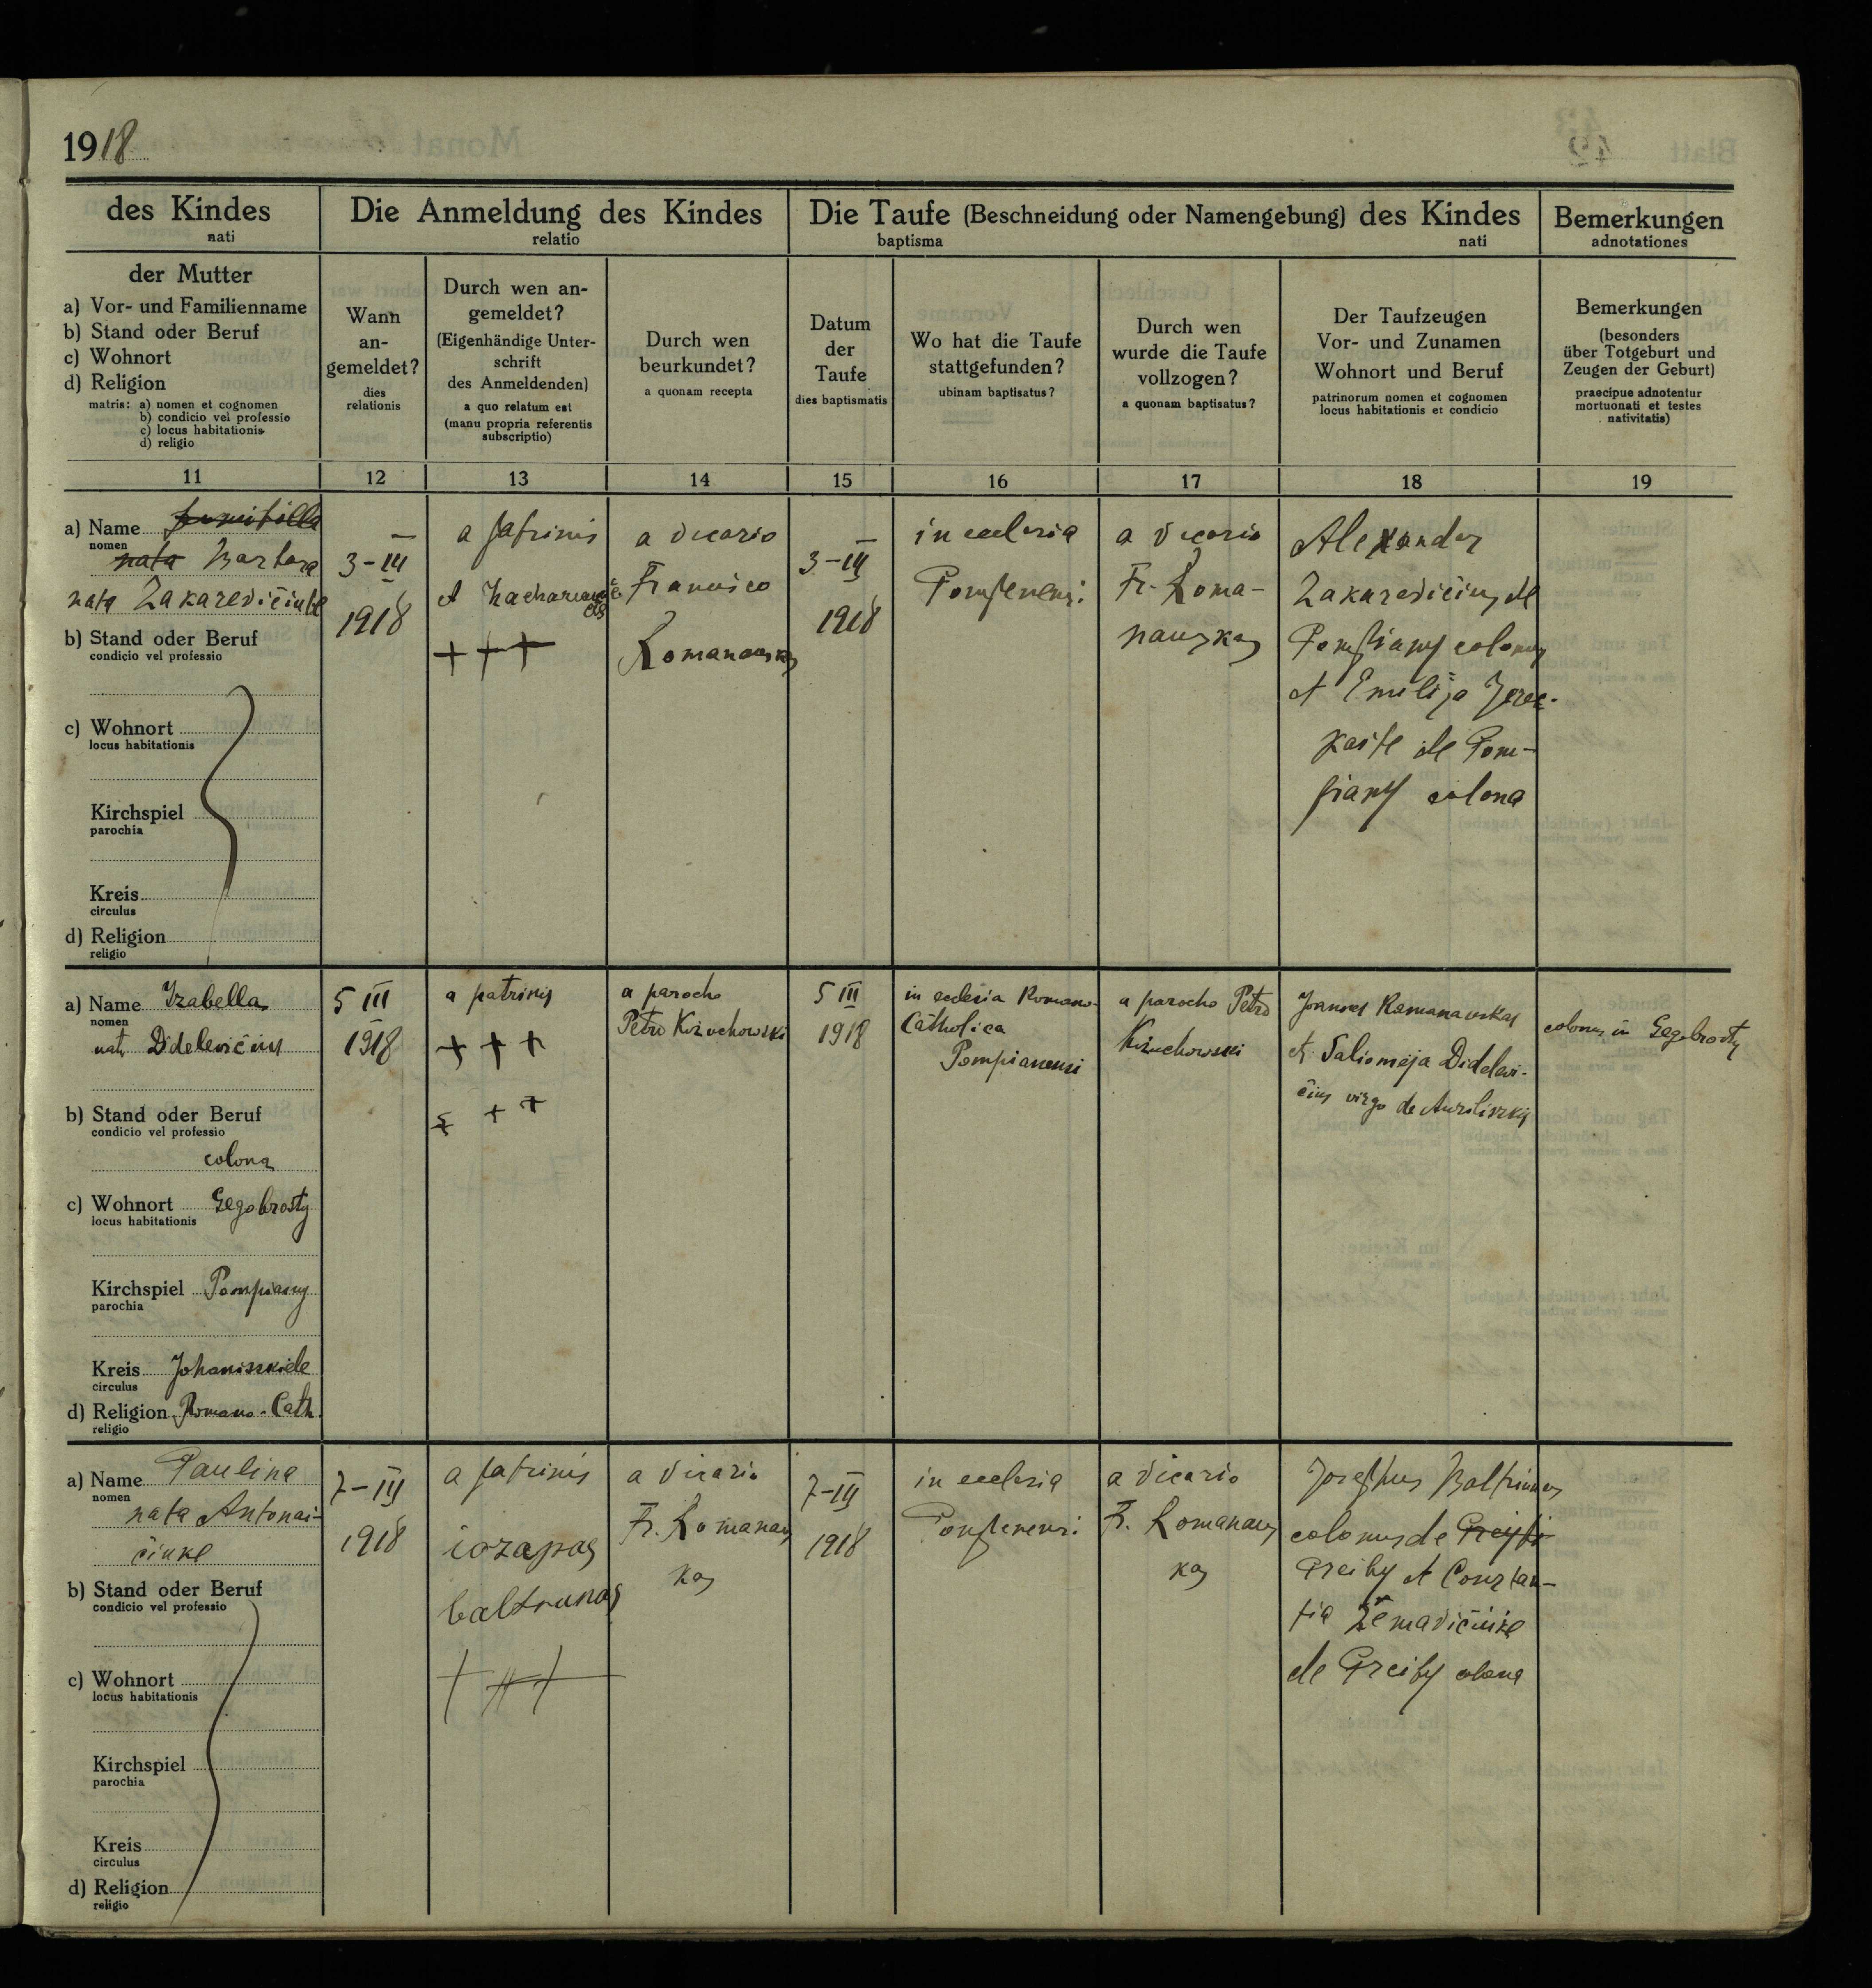 1918
des Kindes
nati
Die Anmeldung des Kindes
relatio
Die Taufe (Beschneidung oder Namengebung) des Kindes
baptisma nati
Bemerkungen
adnotationes
der Mutter
a) Vor- und Familienname
b) Stand oder Beruf
c) Wohnort
d) Religion
matris: a) nomen et cognomen
b) condicio vel professio
c) locus habitationis
d) religio
Wann
an-
gemeldet?
dies
relationis
Durch wen an-
gemeldet?
(Eigenhändige Unter-
schrift
des Anmeldenden)
a quo relatum est
(manu propria referentis
subscriptio)
Durch wen
beurkundet?
a quonam recepta
Datum
der
Taufe
dies baptismatis
Wo hat die Taufe
stattgefunden?
ubinam baptisatus?
Durch wen
wurde die Taufe
vollzogen?
a quonam baptisatus?
Der Taufzeugen
Vor- und Zunamen
Wohnort und Beruf
patrinorum nomen et cognomen
locus habitationis et condicio
Bemerkungen
(besonders
über Totgeburt und
Zeugen der Geburt)
praecipue adnotentur
mortuonati et testes
nativitatis)
11 12 13 14 15 16 17 18 19
a) Name
nomen
nata Barbara
nata Zakarevičiute
b) Stand oder Beruf
condicio vel professio
c) Wohnort
locus habitationis
Kirchspiel
parochia
Kreis
circulus
d) Religion
religio
3-III
1918
a patrinis
et
+++
a vicario
Francisco
Romanauskas
3-III
1918
in ecclesia
Pompenensi
a vicario
Fr. Roma-
nauskas
Alexander
Zakarevičius de
Pompiany colonus
et Emilija
de Pom-
piany colona
a) Name Izabella
nomen
nata Didelevičius
b) Stand oder Beruf
condicio vel professio
colona
c) Wohnort Gegobrosty
locus habitationis
Kirchspiel Pompiany
parochia
Kreis Johaniszkiele
circulus
d) Religion Romano-Cath.
religio
5 III
1918
a patrinis
+ + +
+ + +
a parocho
Petro Kożuchowski
5 III
1918
in ecclesia Romano-
Catholica
Pompianensi
a parocho Petro
Kożuchowski
Joannes Romanauskas
et Saliomeja Didelevi-
čius virgo de Auziliszki
colonus in Gegobrosty
a) Name Paulina
nomen
nata Antonai-
čiuke
b) Stand oder Beruf
condicio vel professio
c) Wohnort
locus habitationis
Kirchspiel
parochia
Kreis
circulus
d) Religion
religio
7-III
1918
a patrinis
iozapas
baltrunas
+++
a vicario
Fr. Romanaus
kas
7-III
1918
in ecclesia
Pompenensi
a vicario
Fr. Romanaus
kas
Josephus Baltrunas
colonus de
Greiby et Constan-
tia Žemavičiuke
de Greiby colona